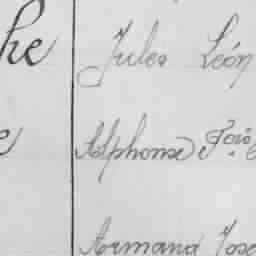 he Jules León
e Alphonse Fois
Armand Jose